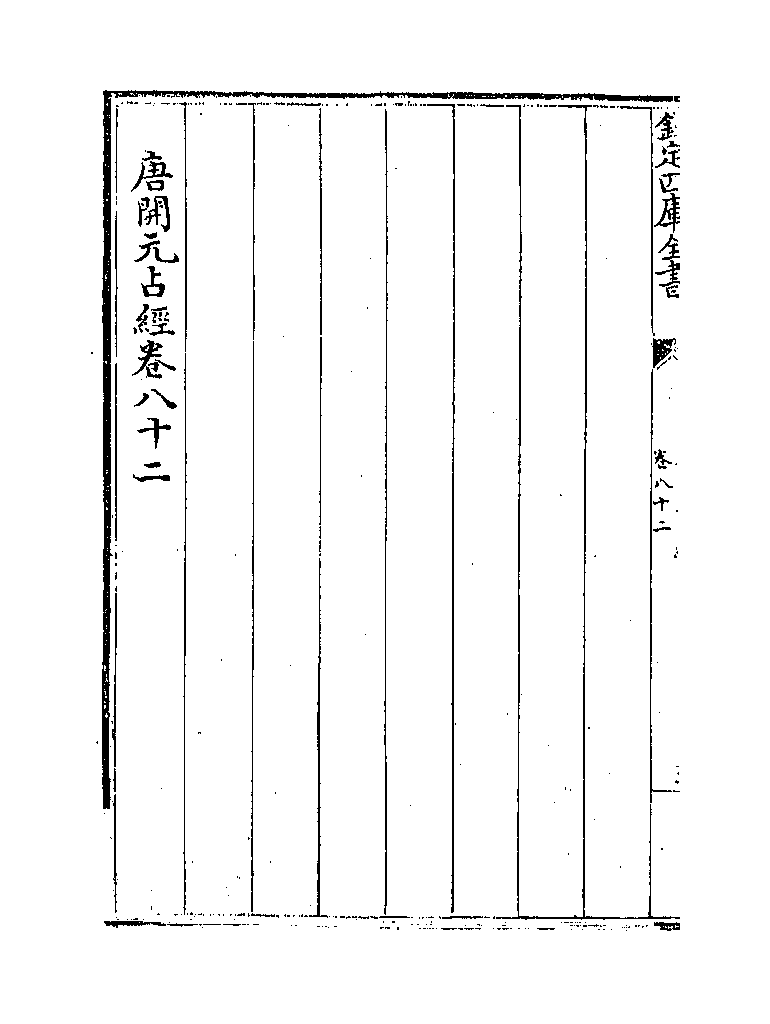 欽定四庫全書
卷八十二
唐開元占經卷八十二